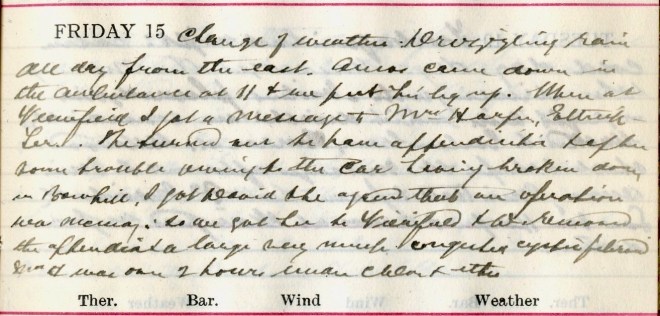 FRIDAY 15 Change of weather. Drizzling rain
all day from the east. Amos came down in
the ambulance at 11 & we put his leg up. When at
Viewfield I got a message to Mrs Harper, Ettrick
Ter. She turned out to have appendicitis & after
some trouble owing to the car having broken down
in Bowhill, I got David she agreed that an operation
was necessary. So we got her to Viewfield & removed
the appendix a large very much congested
Mrs H was over 2 hours under Chlor & ether
Ther. Bar. Wind Weather